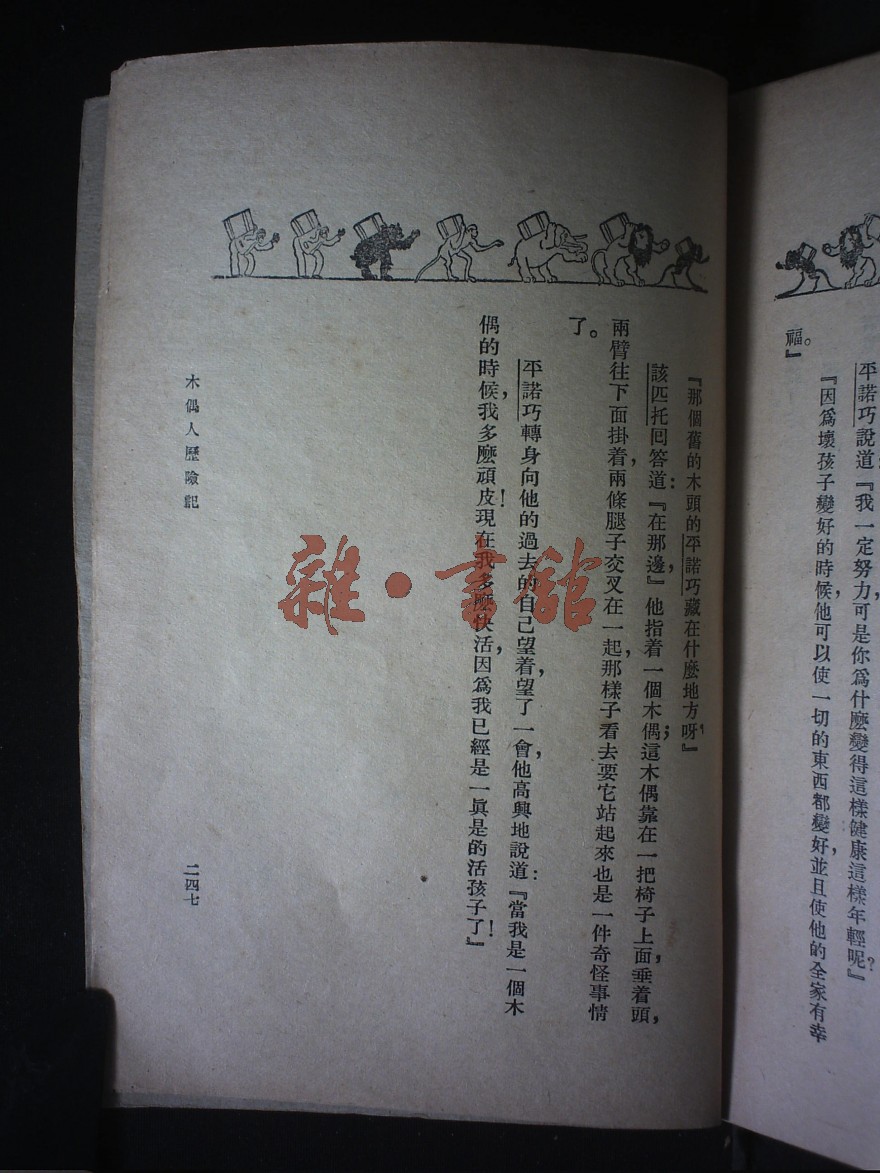 平諾巧說道：『我一定努力，可是你爲什麼變得這樣健康這樣年輕呢？』
『因爲壞孩子變好的時候，他可以使一切的東西都變好，並且使他的全家有幸
福。』
『那個舊的木頭的平諾巧藏在什麼地方呀，』
該匹托回答道：『在那邊，』他指着一個木偶；這木偶靠在一把椅子上面，垂着頭，
兩臂往下面掛着，兩條腿子交叉在一起，那樣子看去要它站起來也是一件奇怪事情
了。
平諾巧轉身向他的過去的自己望着，望了一會，他高興地說道：『當我是一個木
偶的時候，我多麼頑皮！現在我多麼快活，因爲我已經是一眞是的活孩子了！』
木偶人歷險記
二四七
雜·書館